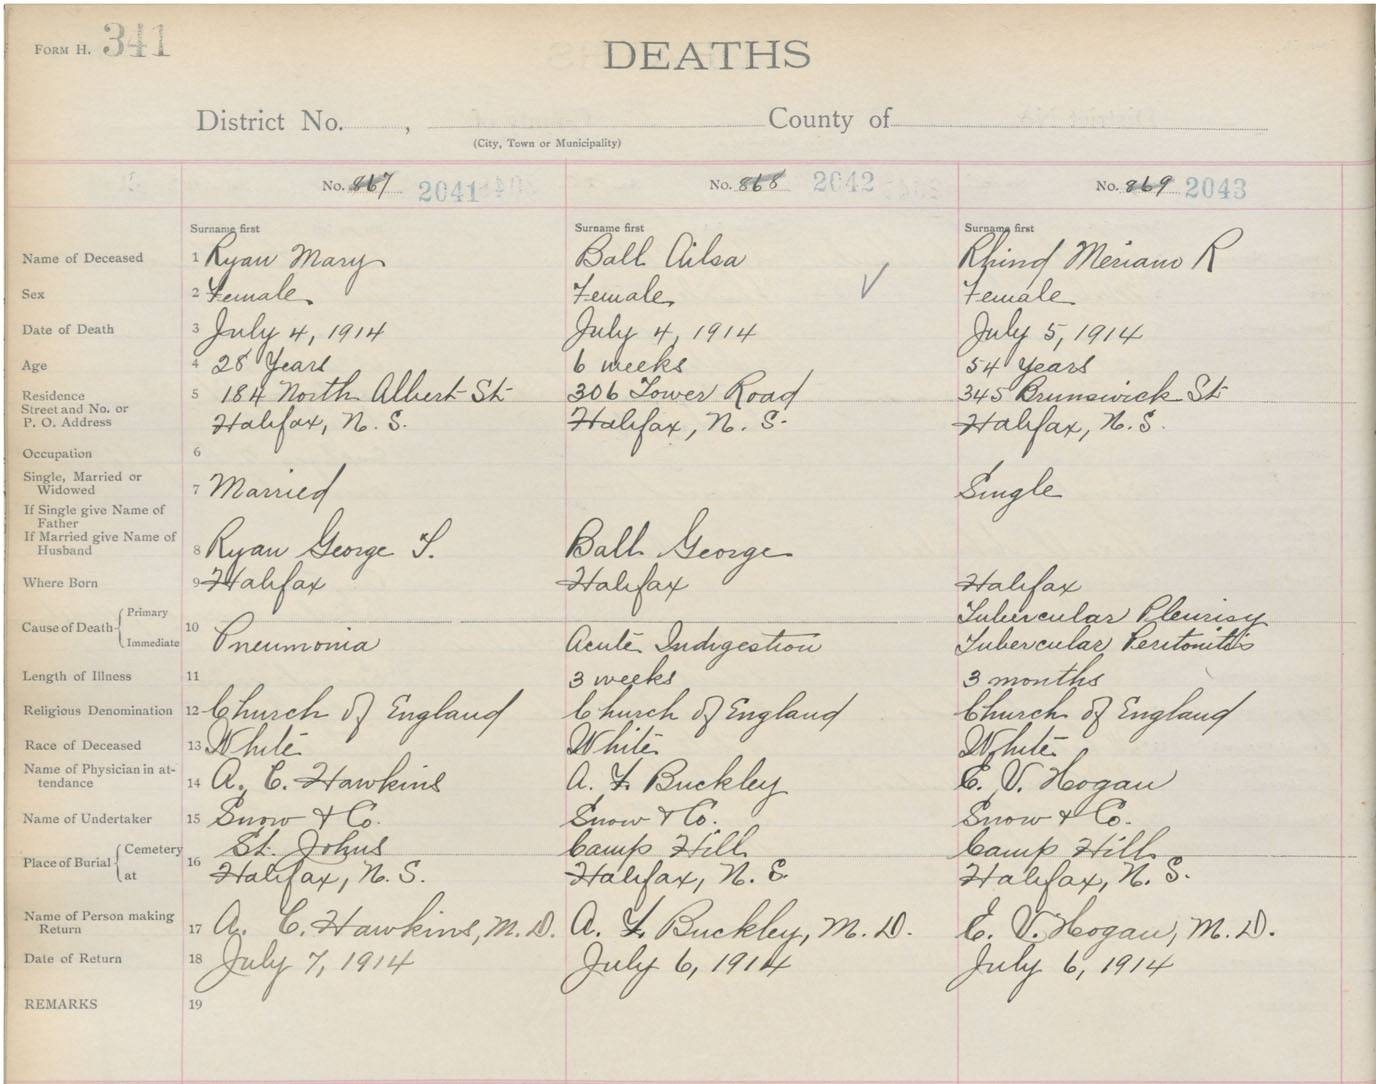 FORM H. 341
DEATHS
District No. , County of
(City, Town or Municipality)
No. 867 2041 No. 868 2042 No. 869 2043
Surname first Surname first Surname first
Name of Deceased 1 Ryan Mary Ball Ailsa Rhind R
Sex 2 Female Female Female
Date of Death 3 July 4, 1914 July 4, 1914 July 5, 1914
Age 4 28 Years 6 weeks 54 years
Residence 5 184 North Albert St 306 Tower Road 345 Brunswick St
Street and No. or
P. O. Address Halifax, N. S. Halifax, N. S. Halifax, N. S.
Occupation 6
Single, Married or
Widowed 7 Married Single
If Single give Name of
Father
If Married give Name of
Husband 8 Ryan George Ball George
Where Born 9 Halifax Halifax Halifax
Primary Tubercular Pleurisy
Cause of Death 10
Immediate Pneumonia Acute Indigestion Tubercular Peritonitis
Length of Illness 11 3 weeks 3 months
Religious Denomination 12 Church of England Church of England Church of England
Race of Deceased 13 White White White
Name of Physician in at-
tendance 14 A. C. Hawkins A. F. Buckley E. V. Hogan
Name of Undertaker 15 Snow & Co. Snow & Co. Snow & Co.
Cemetery St. Johns Camp Hill Camp Hill
Place of Burial 16
at Halifax, N. S. Halifax, N. S. Halifax, N. S.
Name of Person making
Return 17 A. C. Hawkins, M. D. A. F. Buckley, M. D. E. V. Hogan, M. D.
Date of Return 18 July 7, 1914 July 6, 1914 July 6, 1914
REMARKS 19